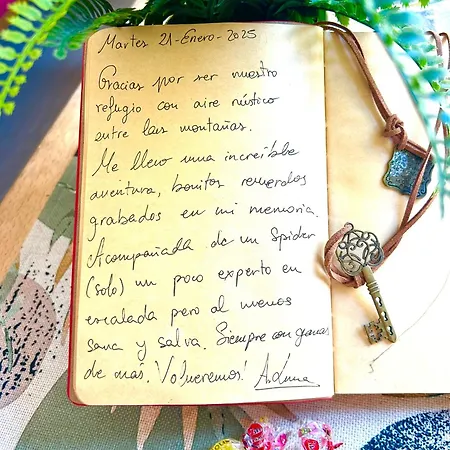 Martes 21-Enero-2025
Gracias por ser nuestro
refugio con aire rústico
entre las montañas.
Me llevo una increíble
aventura, bonitos recuerdos
grabados en mi memoria.
Acompañada de un Spider
(solo) un poco experto en
escalada pero al menos
sana y salva. Siempre con ganas
de más. Volveremos! A.Luna